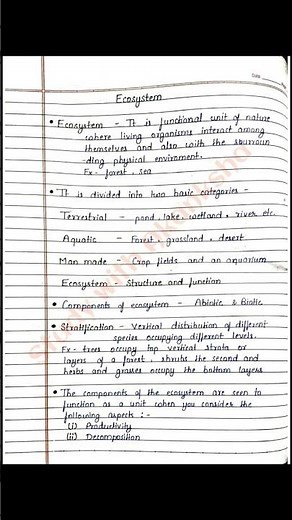 Date
Ecosystem
• Ecosystem - It is functional unit of nature
where living organisms interact among
themselves and also with the surroun
-ding physical enviroment.
Ex - forest, sea
• It is divided into two basic categories -
Terrestrial - pond, lake, wetland, river etc.
Aquatic - Forest, grassland, desert
Man made - Crop fields and an aquarium
Ecosystem - Structure and function
• Components of ecosystem - Abiotic & Biotic
• Stratification - Vertical distribution of different
species occupying different levels.
Ex - trees occupy top vertical strata or
layers of a forest, shrubs the second and
herbs and grasses occupy the bottom layers
• The components of the ecosystem are seen to
function as a unit when you consider the
following aspects :-
(i) Productivity
(ii) Decomposition